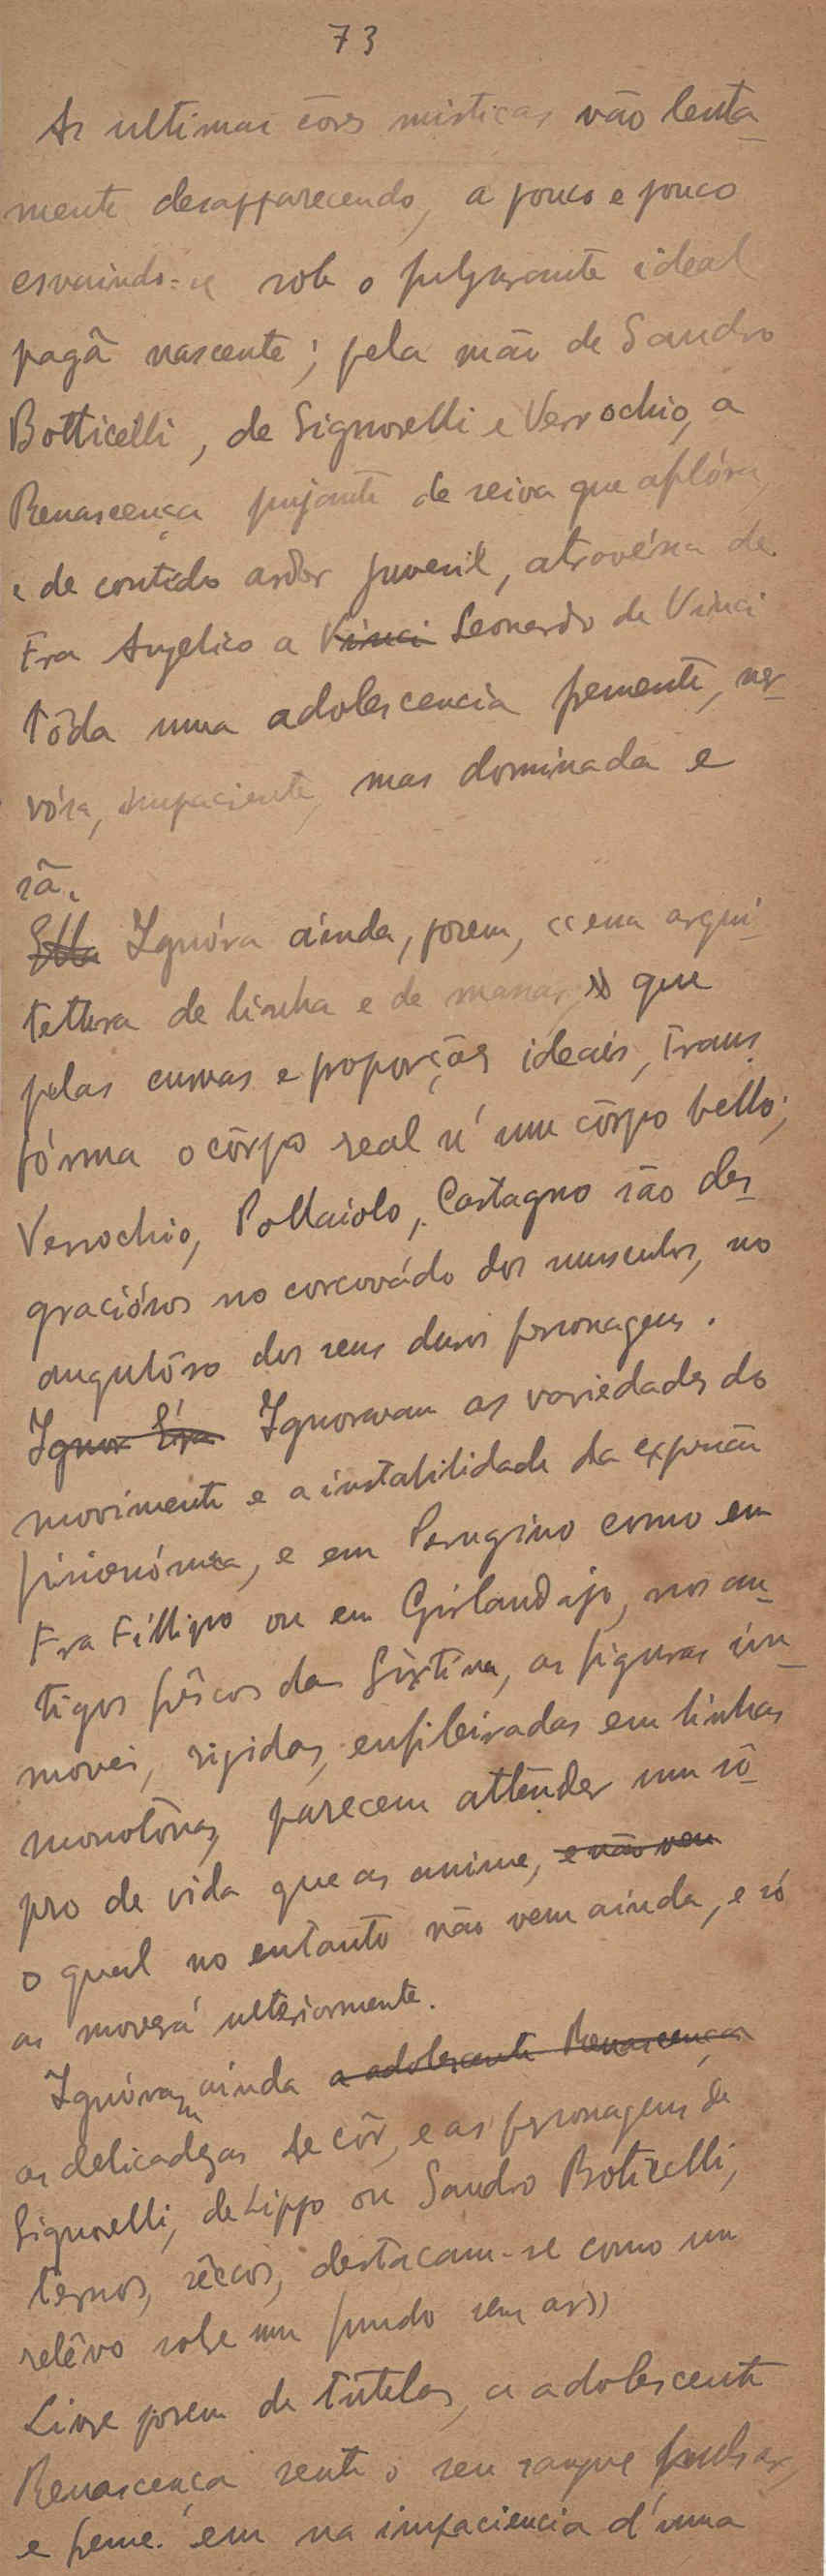 73
As ultimas côres misticas vão lenta-
mente desapparecendo, a pouco e pouco
esvaindo-se sob o fulgurante ideal
pagã nascente; pela mão de Sandro
Botticelli, de Signorelli e Verrochio, a
Renascença pujante de seiva que aflóra,
e de contido ardor juvenil, atravéssa de
Fra Angelico a Vinci Leonardo de Vinci
tôda uma adolescencia fremente, ner-
vósa, impaciente, mas dominada e
sã.
Ella Ignóra ainda, porem, «essa arqui-
tettura de linha e de massas» que
pelas curvas e proporções ideais, trans-
fórma o côrpo real n'um côrpo bello;
Verrochio, Pollaiolo, Castagno são des-
graciósos no corcovádo dos musculos, no
angulôso dos seus duros personagens.
Ignor Éra Ignoravam as variedades do
movimento e a instabilidade da expressão
fisionómica, e em Perugino como em
Fra Fillipo ou em Girlandajo, nos an-
tigos frêscos da Sixtina, as figuras im-
moveis, rigidas, enfileiradas em linhas
monotônas, parecem attender um sô-
pro de vida que as anime, e não vem
o qual no entanto não vem ainda, e só
as moverá ulteriormente.
Ignóram ainda a adolescente Renascença
as delicadezas de côr, e as personagens de
Signorelli, de Lippo ou Sandro Boticelli,
ternos, sêccos, destacam-se como um
relêvo sobre um fundo sem ar»
Livre porem de tutelas, a adolescente
Renascença sente o seu sangue pulsar,
e freme em na impaciencia d'uma